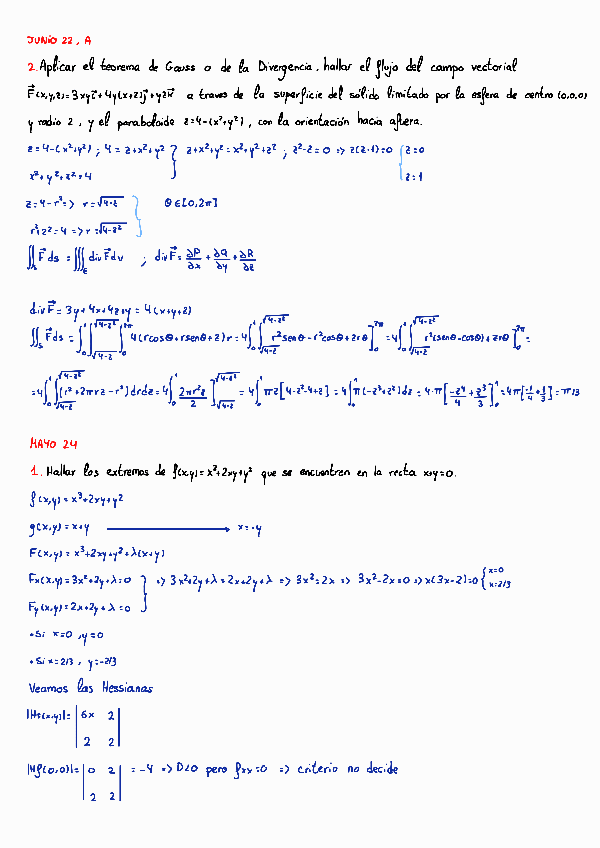 JUNIO 22, A
2. Aplicar el teorema de Gauss o de la Divergencia, hallar el flujo del campo vectorial
F⃗(x,y,z)=3xyi⃗+4y(x+z)j⃗+yzk⃗ a traves de la superficie del solido limitado por la esfera de centro (0,0,0)
y radio 2, y el paraboloide z=4-(x²+y²), con la orientación hacia afuera.
z=4-(x²+y²); 4=z+x²+y² } z+x²+y²=x²+y²+z²; z²-z=0 => z(z-1)=0 { z=0
x²+y²+z²=4 z=1
z=4-r² => r=√4-z } θ∈[0,2π]
r²+z²=4 => r=√4-z²
∬ₛ F⃗ds = ∭ div F⃗ dv ; div F⃗ = ∂P/∂x + ∂Q/∂y + ∂R/∂z
div F⃗ = 3y+4x+4z+y = 4(x+y+z)
∬ₛ F⃗ds = ∫₀¹ ∫_{√4-z}^{√4-z²} ∫₀^{2π} 4(rcosθ+rsenθ+z)r = 4∫₀¹ ∫_{√4-z}^{√4-z²} r²senθ-r²cosθ+zrθ ]₀^{2π} = 4∫₀¹ ∫_{√4-z}^{√4-z²} r²(senθ-cosθ)+zrθ ]₀^{2π} =
=4∫₀¹ ∫_{√4-z}^{√4-z²} (r²+2πrz-r²)drdz = 4∫₀¹ 2πr²z/2 ]_{√4-z}^{√4-z²} = 4∫₀¹ πz[4-z²-4+z] = 4∫₀¹ π(-z³+z²)dz = 4·π[-z⁴/4+z³/3]₀¹ = 4π[-1/4+1/3] = π/3
MAYO 24
1. Hallar los extremos de f(x,y)=x³+2xy+y² que se encuentren en la recta x+y=0.
f(x,y)=x³+2xy+y²
g(x,y)=x+y ⟶ x=-y
F(x,y)=x³+2xy+y²+λ(x+y)
Fx(x,y)=3x²+2y+λ=0 } => 3x²+2y+λ=2x+2y+λ => 3x²=2x => 3x²-2x=0 => x(3x-2)=0 { x=0
x=2/3
Fy(x,y)=2x+2y+λ=0
• Si x=0, y=0
• Si x=2/3, y=-2/3
Veamos las Hessianas
|Hf(x,y)|= | 6x 2 |
| 2 2 |
|Hf(0,0)|= | 0 2 | = -4 => D<0 pero fxx=0 => criterio no decide
| 2 2 |